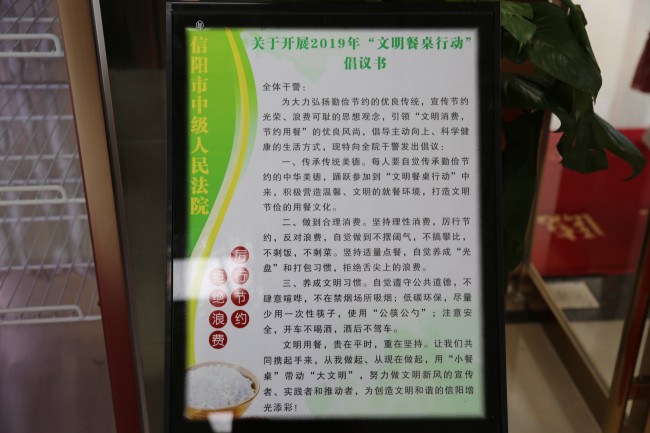 信阳市中级人民法院
关于开展2019年“文明餐桌行动”
倡议书
全体干警：
为大力弘扬勤俭节约的优良传统，宣传节约
光荣、浪费可耻的思想观念，引领“文明消费，
节约用餐”的优良风尚，倡导主动向上、科学健
康的生活方式，现特向全院干警发出倡议：
一、传承传统美德。每人要自觉传承勤俭节约
的中华美德，踊跃参加到“文明餐桌行动”中
来，积极营造温馨、文明的就餐环境，打造文明
节俭的用餐文化。
二、做到合理消费。坚持理性消费，厉行节
约，反对浪费，自觉做到不摆阔气，不搞攀比，
不剩饭，不剩菜。竖持适量点餐，自觉养成“光
盘”和打包习惯，拒绝舌尖上的浪费。
三、养成文明习惯。自觉遵守公共道德，不
肆意喧哗，不在禁烟场所吸烟；低碳环保，尽量
少用一次性筷子，使用“公筷公勺”；注意安
全，开车不喝酒，酒后不驾车。
文明用餐，贵在平时，重在坚持。让我们共
同携起手来，从我做起、从现在做起，用“小餐
桌”带动“大文明”，努力做文明新风的宣传
者、实践者和推动者，为创造文明和谐的信阳增
光添彩！
厉行节约
拒绝浪费